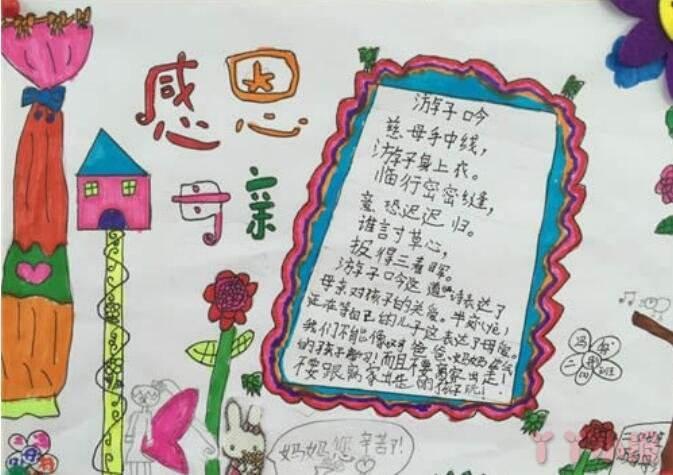 感恩
母亲
游子吟
慈母手中线，
游子身上衣。
临行密密缝，
意恐迟迟归。
谁言寸草心，
报得三春晖。
游子吟这道诗表达了
母亲对孩子的关爱。
还在等自己的儿子这表达了母爱。
我们不能像 爸爸妈妈
的孩子 ！而且不要离家出走！
不要跟离家出走的孩子玩！
妈妈您辛苦了！